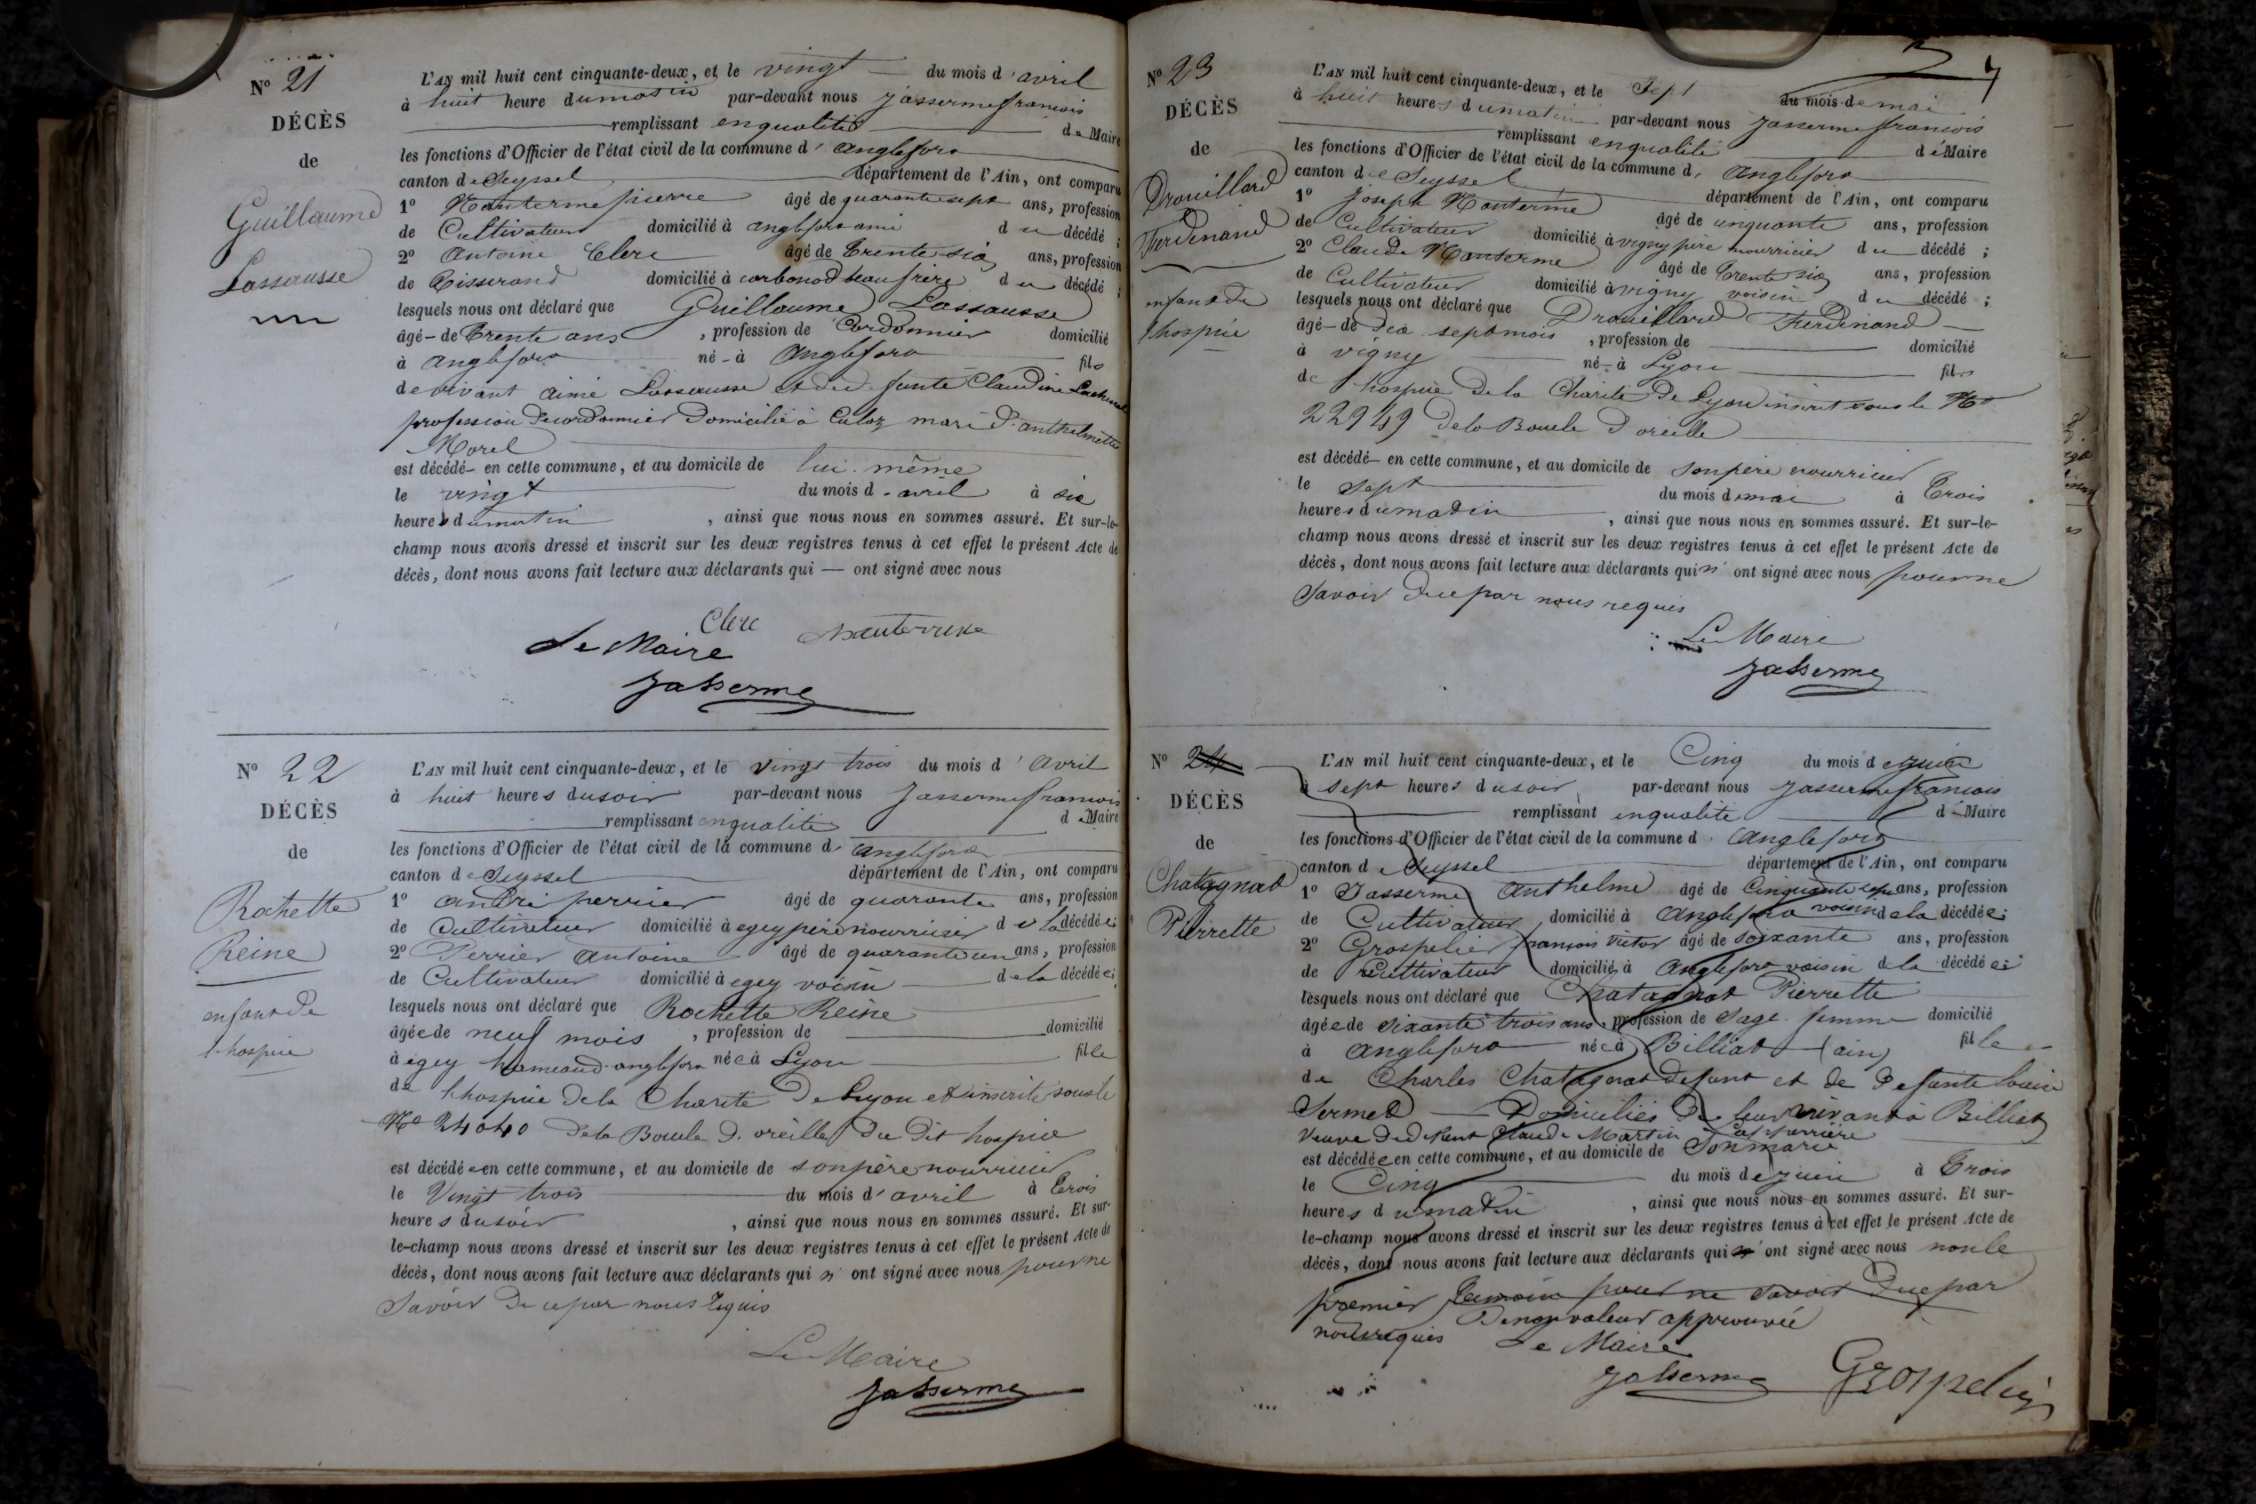 N° 21
DÉCÈS
de
Guillaume
Lassausse
L'AN mil huit cent cinquante-deux, et le vingt du mois d'avril
à huit heure du matin par-devant nous Jasserme françois
remplissant en qualité de Maire
les fonctions d'Officier de l'état civil de la commune d'Anglefort
canton de Seyssel département de l'Ain, ont comparu
1° Manterme pierre âgé de quarante sept ans, profession
de Cultivateur domicilié à anglefort ami du décédé ;
2° Antoine Clerc âgé de Trente six ans, profession
de Tisserand domicilié à corbonod beau frère du décédé ;
lesquels nous ont déclaré que Guillaume Lassausse
âgé de Trente ans, profession de Cordonnier domicilié
à anglefort né à Anglefort fils
de vivant aimé Lassausse et de defunte Claudine
profession de cordonnier Domicilié à Culoz mari d'anthelmette
Morel
est décédé en cette commune, et au domicile de lui-même
le vingt du mois d'avril à six
heures du matin, ainsi que nous nous en sommes assuré. Et sur-le-
champ nous avons dressé et inscrit sur les deux registres tenus à cet effet le présent Acte de
décès, dont nous avons fait lecture aux déclarants qui — ont signé avec nous
Clerc Manterme
Le Maire
Jasserme
N° 22
DÉCÈS
de
Rochette
Reine
enfant de
l'hospice
L'AN mil huit cent cinquante-deux, et le vingt trois du mois d'Avril
à huit heures du soir par-devant nous Jasserme françois
remplissant en qualité de Maire
les fonctions d'Officier de l'état civil de la commune d'Anglefort
canton de Seyssel département de l'Ain, ont comparu
1° André perrier âgé de quarante ans, profession
de Cultivateur domicilié à egey père nourricier de la décédée;
2° Perrier Antoine âgé de quarante un ans, profession
de Cultivateur domicilié à egey voisin de la décédée;
lesquels nous ont déclaré que Rochette Reine
âgée de neuf mois, profession de domicilié
à egey hameaud'anglefort née à Lyon fille
de l'hospice de la Charité de Lyon et inscrite sous le
N° 24040 de la Boucle d'oreille du Dit hospice
est décédée en cette commune, et au domicile de son père nourricier
le Vingt trois du mois d'avril à Trois
heures du soir, ainsi que nous nous en sommes assuré. Et sur-
le-champ nous avons dressé et inscrit sur les deux registres tenus à cet effet le présent Acte de
décès, dont nous avons fait lecture aux déclarants qui n'ont signé avec nous pour ne
Savoir De ce par nous requis
Le Maire
Jasserme
7
N° 23
DÉCÈS
de
Drouillard
Ferdinand
enfant de
l'hospice
L'AN mil huit cent cinquante-deux, et le Sept du mois de mai
à huit heures du matin par-devant nous Jasserme françois
remplissant en qualité de Maire
les fonctions d'Officier de l'état civil de la commune d'Anglefort
canton de Seyssel département de l'Ain, ont comparu
1° Joseph Manterme âgé de cinquante ans, profession
de Cultivateur domicilié à vigny père nourricier du décédé ;
2° Claude Manterme âgé de Trente six ans, profession
de Cultivateur domicilié à vigny voisin du décédé ;
lesquels nous ont déclaré que Drouillard Ferdinand
âgé de Dix sept mois, profession de domicilié
à vigny né à Lyon fils
de l'hospice de la Charité De Lyon inscrit sous le N°
22949 de la Boucle D'oreille
est décédé en cette commune, et au domicile de son père nourricier
le Sept du mois de mai à Trois
heures du matin, ainsi que nous nous en sommes assuré. Et sur-le-
champ nous avons dressé et inscrit sur les deux registres tenus à cet effet le présent Acte de
décès, dont nous avons fait lecture aux déclarants qui n'ont signé avec nous pour ne
Savoir De ce par nous requis
Le Maire
Jasserme
N° 24
DÉCÈS
de
Chatagnat
Pierrette
L'AN mil huit cent cinquante-deux, et le Cinq du mois de juin
à sept heures du soir par-devant nous Jasserme françois
remplissant en qualité de Maire
les fonctions d'Officier de l'état civil de la commune d'Anglefort
canton de Seyssel département de l'Ain, ont comparu
1° Jasserme Anthelme âgé de Cinquante sept ans, profession
de Cultivateur domicilié à Anglefort voisin de la décédée;
2° Grospelier françois victor âgé de soixante ans, profession
de Cultivateur domicilié à Anglefort voisin de la décédée;
lesquels nous ont déclaré que Chatagnat Pierrette
âgée de sixante trois ans, profession de Sage femme domicilié
à Anglefort née à Billiat (ain) fille
de Charles Chatagnat defunt et de Defunte Louise
Sermet Domiciliés De leur vivant à Billiat
Veuve De defunt Claude Martin
est décédée en cette commune, et au domicile de Son marie
le Cinq du mois de juin à Trois
heures du matin, ainsi que nous nous en sommes assuré. Et sur-
le-champ nous avons dressé et inscrit sur les deux registres tenus à cet effet le présent Acte de
décès, dont nous avons fait lecture aux déclarants qui ont signé avec nous non le
premier temoin pour ne savoir De ce par
nous requis
Le Maire
Jasserme Grospelier